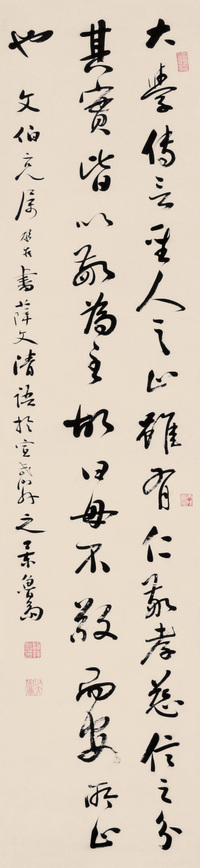 大學傳言聖人之止雖有仁敬孝慈信之分
其實皆以敬為主故曰毋不敬而安所止
也
文伯亮屬書薛文清語於宣南之